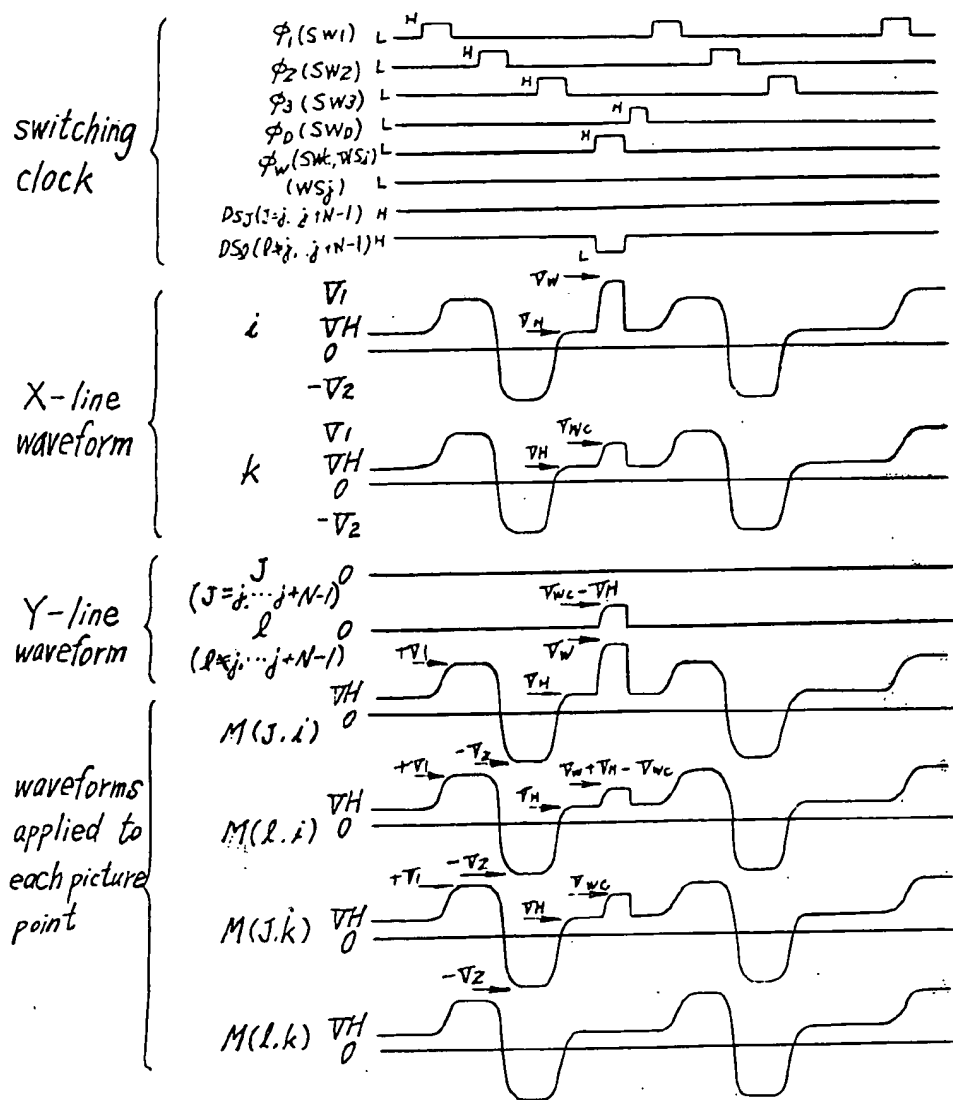 switching clock
φ1(SW1) L H
φ2(SW2) L H
φ3(SW3) L H
φD(SWD) L H
L H
(WSj) L
DSJ(J=j, j+N-1) H
DSl(l≠j, ..j+N-1) H L
X-line waveform
i
V1
VH
0
-V2
VW
VH
k
V1
VH
0
-V2
VWC
VH
Y-line waveform
J 0
(J=j, ... j+N-1)
l 0
(l≠j, ... j+N-1)
VWC-VH
waveforms applied to each picture point
M(J.i) VH 0
+V1
VH
VW
-V2
M(l.i) VH 0
+V1
VH
VW+VH-VWC
-V2
M(J.k) VH 0
+V1
VH
VWC
-V2
M(l.k) VH 0